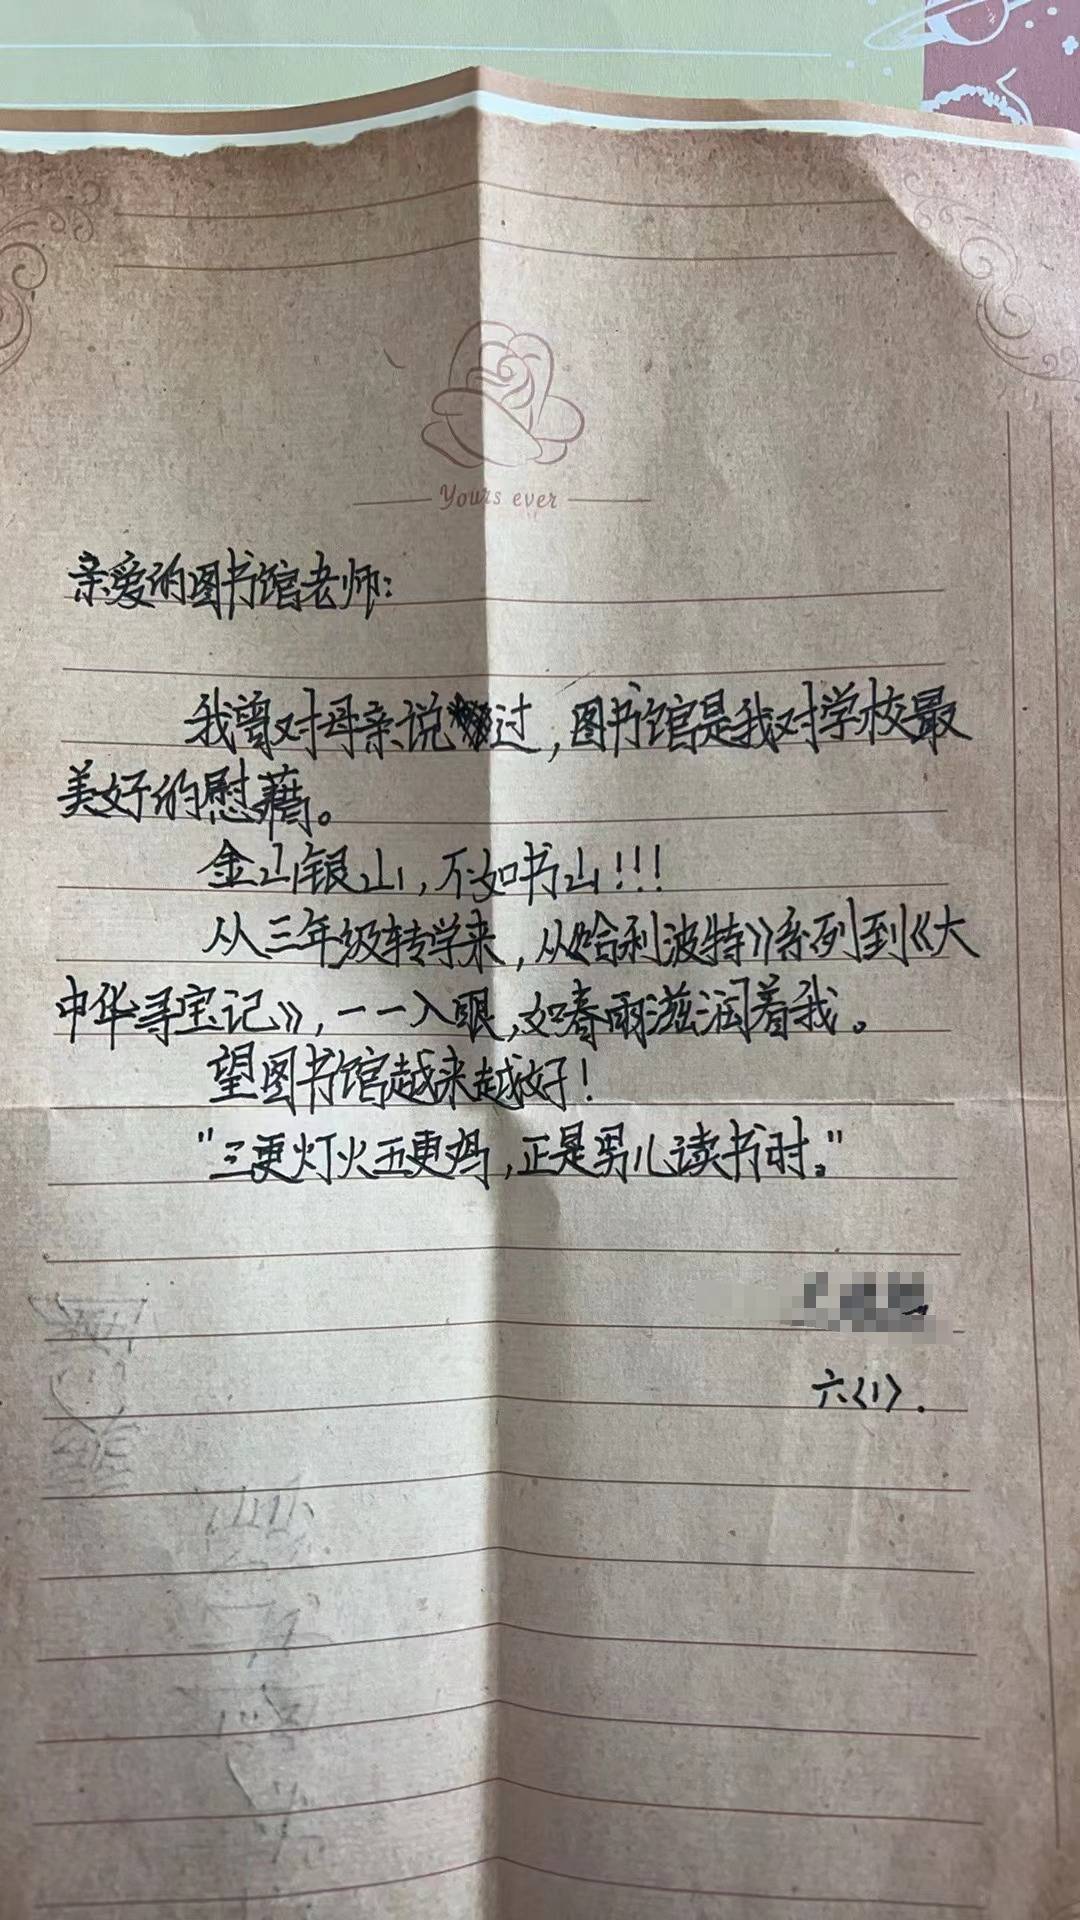 Yours ever
亲爱的图书馆老师：
我曾对母亲说过，图书馆是我对学校最
美好的慰藉。
金山银山，不如书山！！！
从三年级转学来，从《哈利波特》系列到《大
中华寻宝记》，一一入眼，如春雨滋润着我。
望图书馆越来越好！
"三更灯火五更鸡，正是男儿读书时。"
六〈1〉.